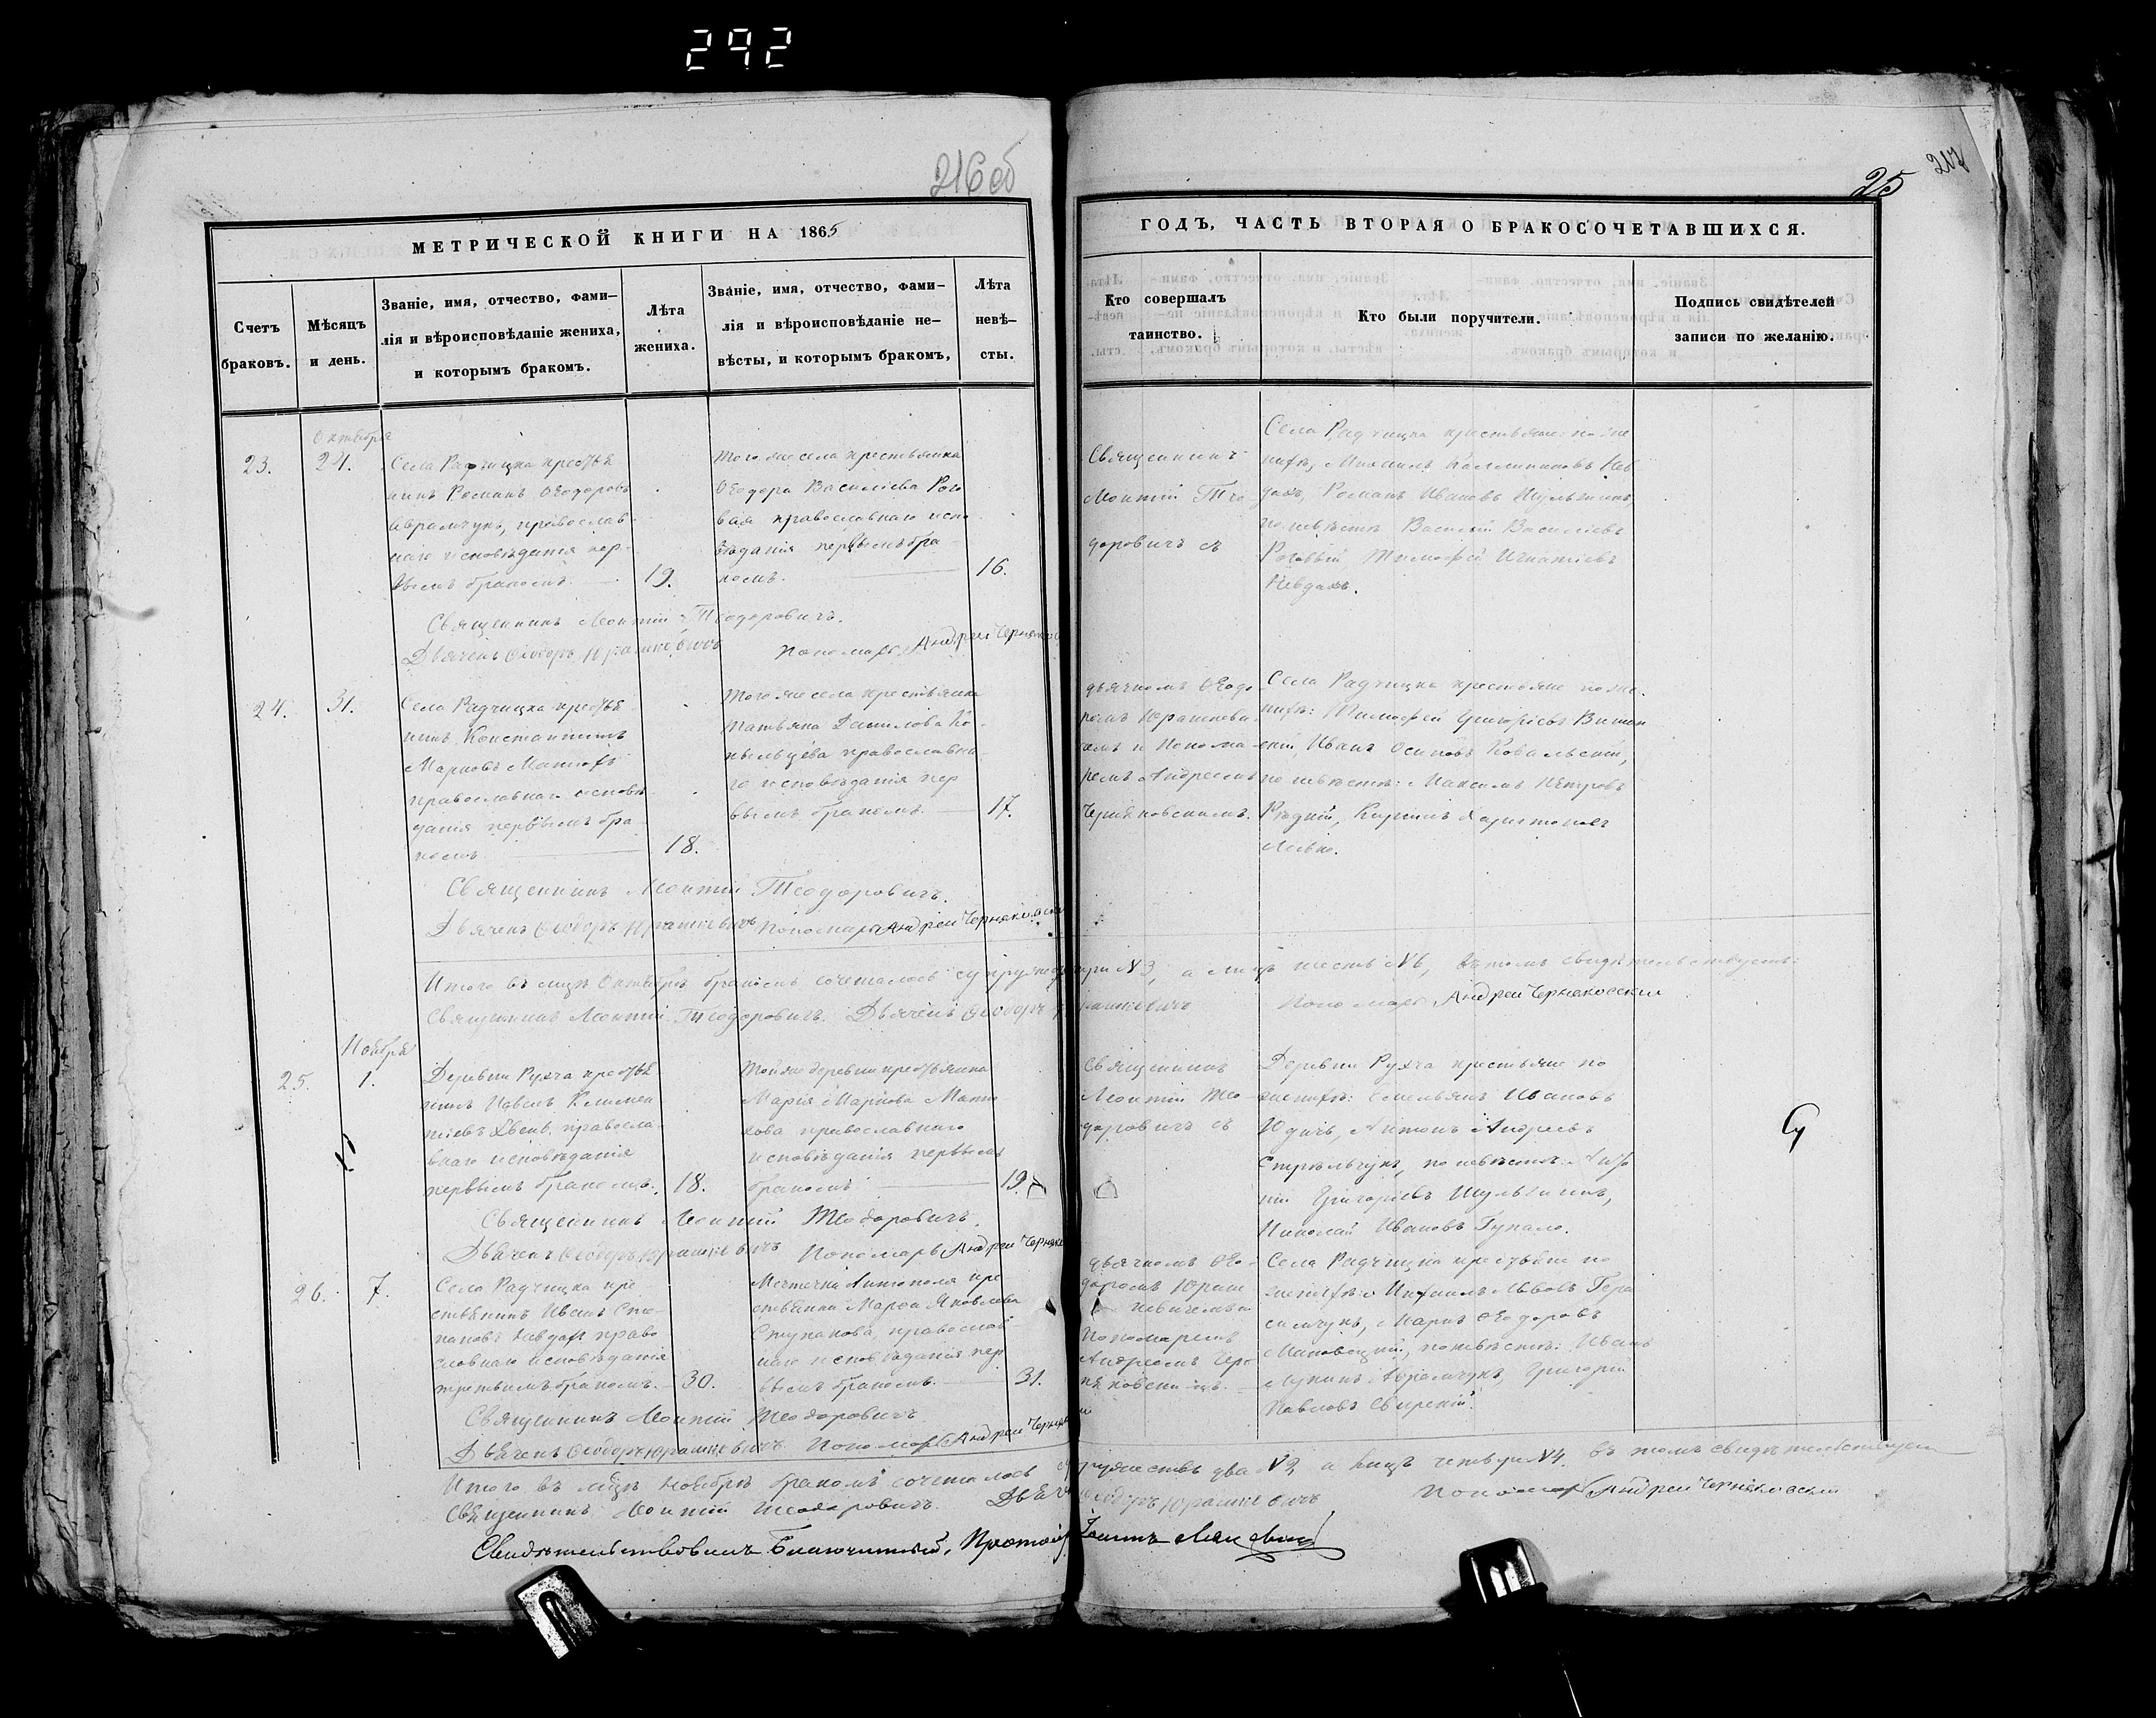 292
216 об
25
217
МЕТРИЧЕСКОЙ КНИГИ НА 1865
ГОДЪ, ЧАСТЬ ВТОРАЯ О БРАКОСОЧЕТАВШИХСЯ.
Счетъ браковъ.
Мѣсяцъ и день.
Званіе, имя, отчество, фами-
лія и вѣроисповѣданіе жениха,
и которымъ бракомъ.
Лѣта
жениха.
Званіе, имя, отчество, фами-
лія и вѣроисповѣданіе не-
вѣсты, и которымъ бракомъ,
Лѣта
невѣ-
сты.
Кто совершалъ
таинство.
Кто были поручители.
Подпись свидѣтелей
записи по желанію.
Октября
23.
24.
Села Радчицка крестья
нинъ Романъ Ѳеодоровъ
Аврамчукъ, православ
наго исповѣданія пер-
вымъ бракомъ.
19.
Того же села крестьянка
Ѳеодора Василіева Рого
вая православнаго испо
вѣданія первымъ бра-
комъ.
16.
Священникъ
Леонтій Тео
доровичъ съ
Села Радчицка крестьяне: по же
нихѣ, Михаилъ Каллиниковъ Нев
дахъ, Романъ Ивановъ Шульжикъ,
по невѣстѣ Василій Василіевъ
Роговый, Тимофей Игнатіевъ
Невдахъ.
Священникъ Леонтій Теодоровичъ.
Дьячекъ Ѳеодоръ Юрашкевичъ
Пономарь Андрей Черняковс
24.
31.
Села Радчицка крестья
нинъ Константинъ
Марковъ
православнаго исповѣ
данія первымъ бра
комъ
18.
Того же села крестьянка
Татьяна Данилова Ко-
пыльцева православна-
го исповѣданія пер
вымъ бракомъ.
17.
дьячкомъ Ѳеодо
ромъ Юрашкеви
чемъ и Понома
ремъ Андреемъ
Черняковскимъ.
Села Радчицка крестьяне по же-
нихѣ: Тимофей Григоріевъ
Иванъ Осиповъ Ковальскій,
по невѣстѣ: Максимъ Петровъ
Рѣдкій, Кириллъ Харитоновъ
Левко.
Священникъ Леонтій Теодоровичъ.
Дьячекъ Ѳеодоръ Юрашкевичъ Пономарь Андрей Черняковски
Итого въ мцѣ Октябрѣ бракомъ сочеталось супружествъ три №3, а лицъ шесть №6, въ томъ свидѣтельствуемъ:
Священникъ Леонтій Теодоровичъ. Дьячекъ Ѳеодоръ Юрашкевичъ Пономарь Андрей Черняковский
Ноября
25.
1.
Деревни Рухча крестья
нинъ Павелъ Климен
тіевъ правосла-
внаго исповѣданія
первымъ бракомъ.
18.
Той же деревни крестьянка
Марія Маркова
православнаго
исповѣданія первымъ
бракомъ
19.
Священникъ
Леонтій Тео-
доровичъ съ
Деревни Рухча крестьяне по
женихѣ: Емельянъ Ивановъ
Юдичъ, Антонъ Андреевъ
Стрѣльчукъ, по невѣстѣ:
Григоріевъ Шульжикъ,
Николай Ивановъ Гупало.
Священникъ Леонтій Теодоровичъ.
Дьячекъ Ѳеодоръ Юрашкевичъ Пономарь Андрей Черняк
26.
7.
Села Радчицка кре
стьянинъ Иванъ Сте-
пановъ Невдахъ право
славнаго исповѣданія
третьимъ бракомъ.
30.
Мѣстечка Антополя кре
стьянка Марѳа Яковлева
Ступакова, православ-
наго исповѣданія пер
вымъ бракомъ.
31.
дьячкомъ Ѳео-
доромъ Юраш
кевичемъ и
Пономаремъ
Андреемъ Чер-
няковскимъ.
Села Радчицка крестьяне по
женихѣ: Михаилъ Львовъ Гера
симчукъ, Маркъ Ѳеодоровъ
по невѣстѣ: Иванъ
Лукинъ Аврамчукъ, Григорій
Павловъ Свирскій.
Священникъ Леонтій Теодоровичъ
Дьячекъ Ѳеодоръ Юрашкевичъ. Пономарь Андрей Черняк
Итого въ мцѣ Ноябрѣ бракомъ сочеталось супружествъ два №2, а лицъ четыре №4. въ томъ свидѣтельствуемъ
Священникъ Леонтій Теодоровичъ. Дьячекъ Ѳеодоръ Юрашкевичъ Пономарь Андрей Черняковский
Свидѣтельствовалъ Благочинный, Протоіерей Іоаннъ